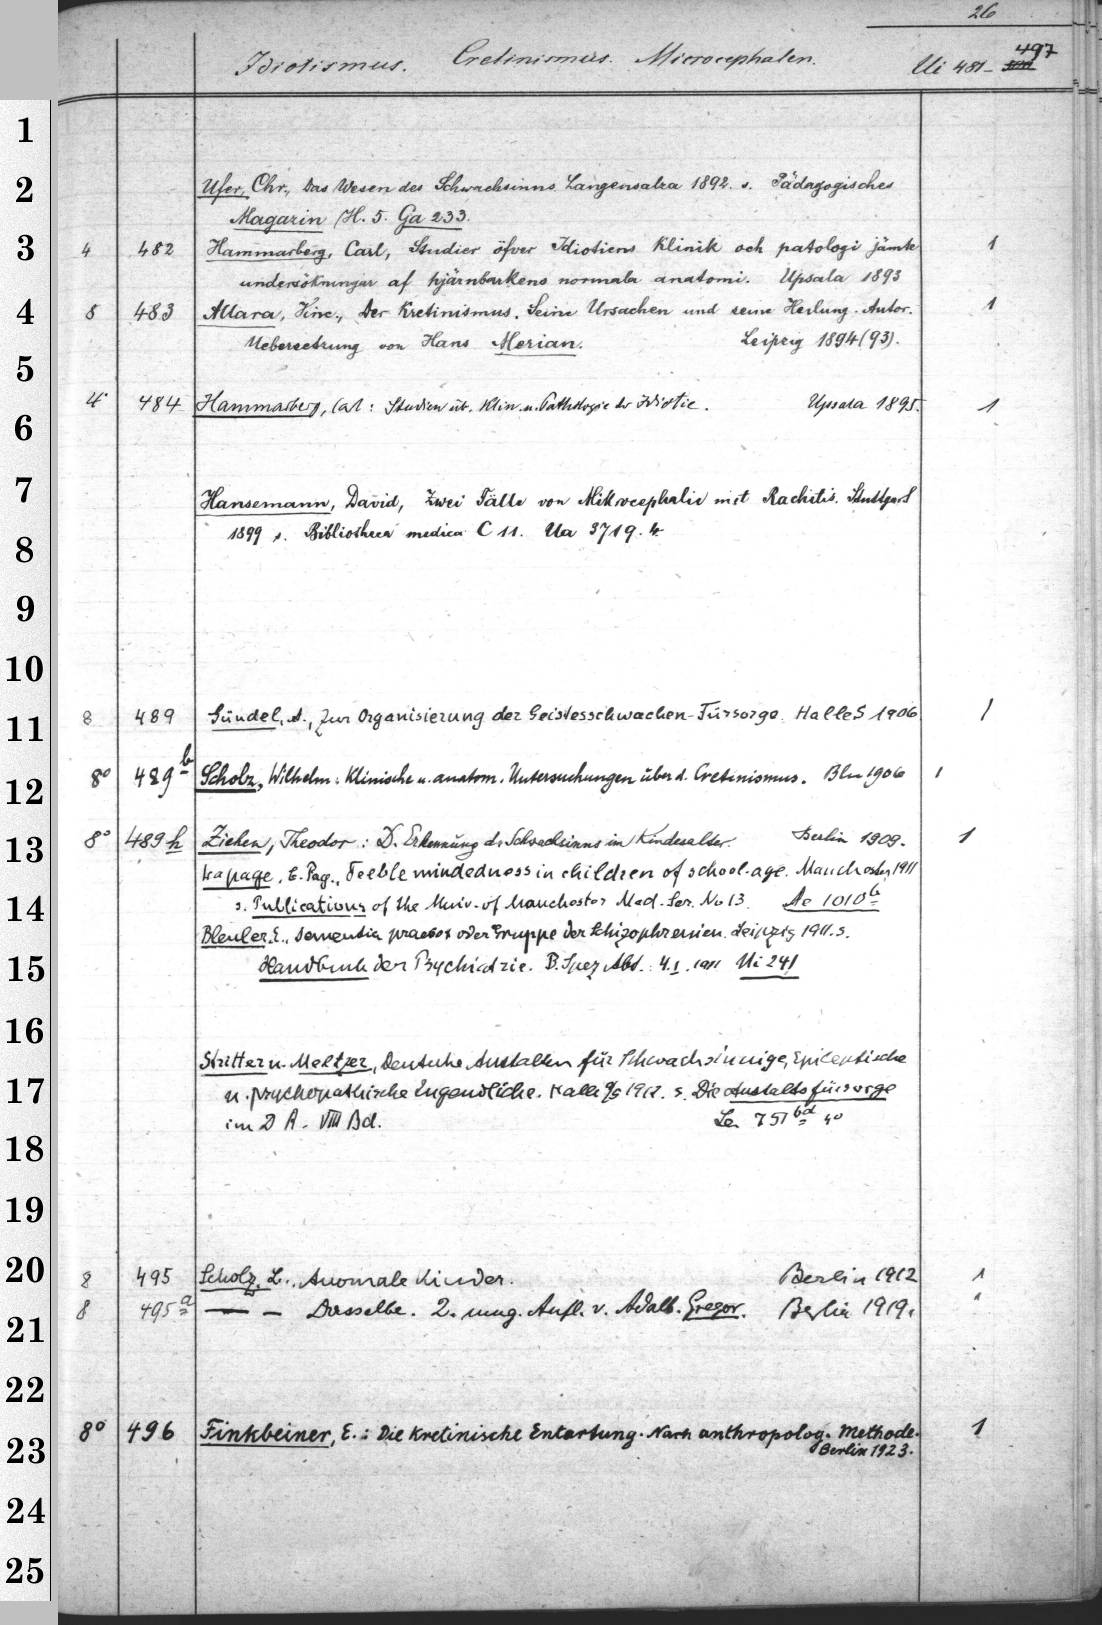 26
Idiotismus. Cretinismus. Microcephalen. Ui 481- 497
1
2 Ufer, Chr., Das Wesen des Schwachsinns. Langensalza 1892. s. Pädagogisches
Magazin H. 5. Ga 233.
3 4 482 Hammarberg, Carl, Studier öfver Idiotiens Klinik och patologi jämte 1
undersökningar af hjärnbarkens normala anatomi. Upsala 1893
4 8 483 Allara, Vinc., Der Kretinismus. Seine Ursachen und seine Heilung. Autor. 1
Uebersetzung von Hans Merian. Leipzig 1894(93).
5
4° 484 Hammarberg, Carl: Studien üb. Klin. u. Pathologie der Idiotie. Upsala 1895. 1
6
7 Hansemann, David, Zwei Fälle von Mikrocephalie mit Rachitis. Stuttgart
1899 s. Bibliotheca medica C 11. Ua 3719. 4
8
9
10
8 489 Gündel, A., Zur Organisierung der Geistesschwachen-Fürsorge. Halle S 1906. 1
11
8° 489 b Scholz, Wilhelm: Klinische u. anatom. Untersuchungen über d. Cretinismus. Bln 1906 1
12
8° 489 h Ziehen, Theodor: D. Erkennung d. Schwachsinns im Kindesalter. Berlin 1909. 1
13
Lapage, C. Pag., Feeblemindedness in children of school-age. Manchester 1911
14 s. Publications of the Univ. of Manchester Med. Ser. No 13. Ae 1010 b
Bleuler, E., Dementia praecox oder Gruppe der Schizophrenien. Leipzig 1911. s.
15 Handbuch der Psychiatrie. B. Spez. Abt. 4.I. 1911 Ui 241
16
Stritter u. Meltzer, Deutsche Anstalten für Schwachsinnige, Epileptische
17 u. psychopathische Jugendliche. Halle a/S 1912. s. Die Anstaltsfürsorge
im D A. VIII Bd. 751 bd 4°
18
19
20 8 495 Scholz, L., Anomale Kinder. Berlin 1912 1
8 495 a — — Dasselbe. 2. umg. Aufl. v. Adalb. Gregor. Berlin 1919.
21
22
8° 496 Finkbeiner, E.: Die kretinische Entartung. Nach anthropolog. Methode. 1
23 Berlin 1923.
24
25